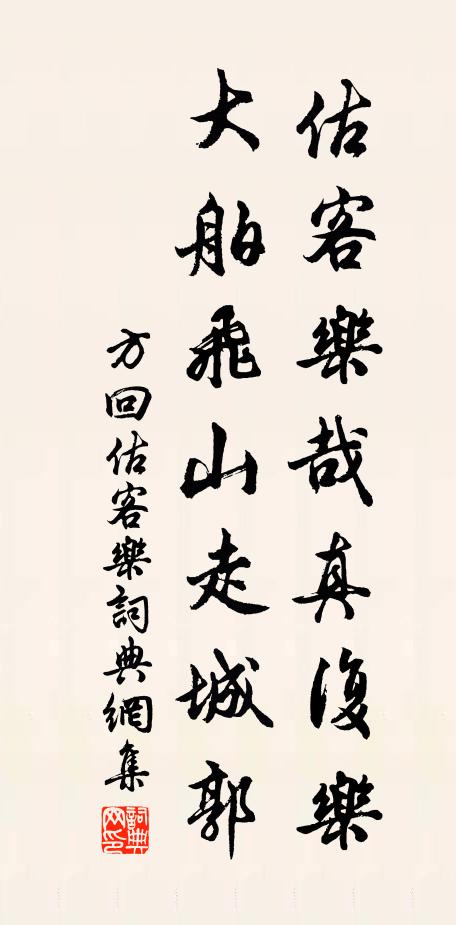 估客樂哉真復樂
大舶飛山走城郭
方回估客樂詞典網集
詞典網印